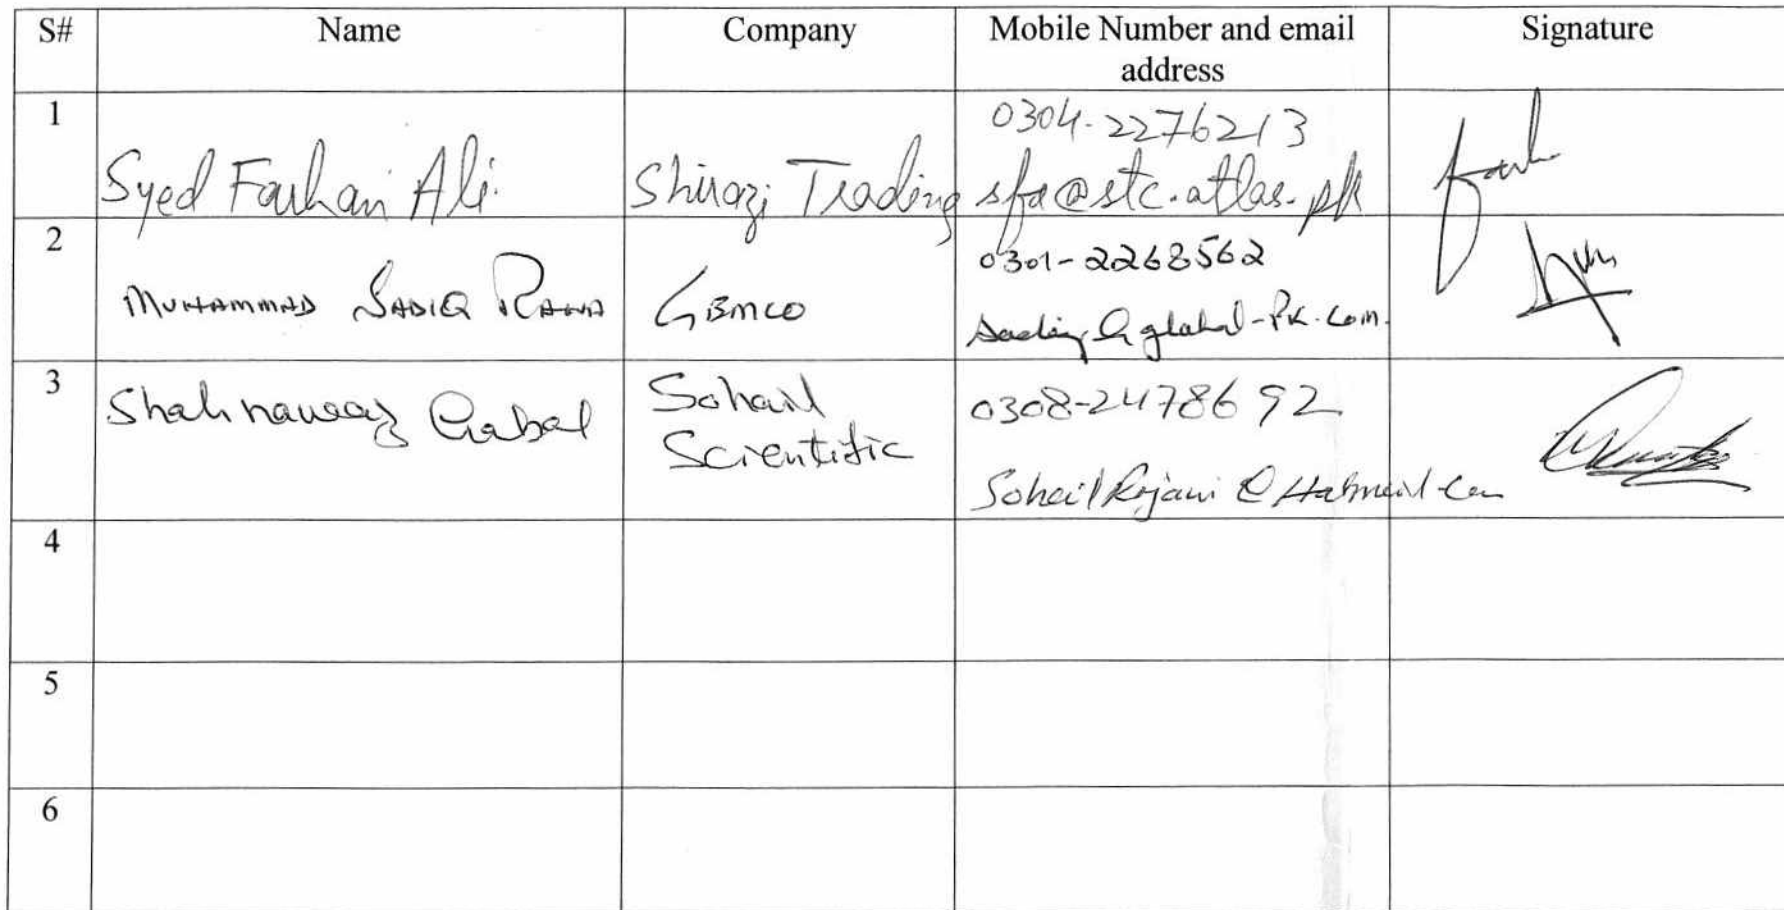 S# Name Company Mobile Number and email address Signature
1 Syed Farhan Ali. Shirazi Trading 0304-2276213
sfa@stc.atlas.pk
2 MUHAMMAD SADIQ RANA GBMCO 0301-2268562
@global-Pk.com.
3 Shahnawaz Sohail 0308-2478692
Scientific
SohailRojani@Hotmail.com
4
5
6